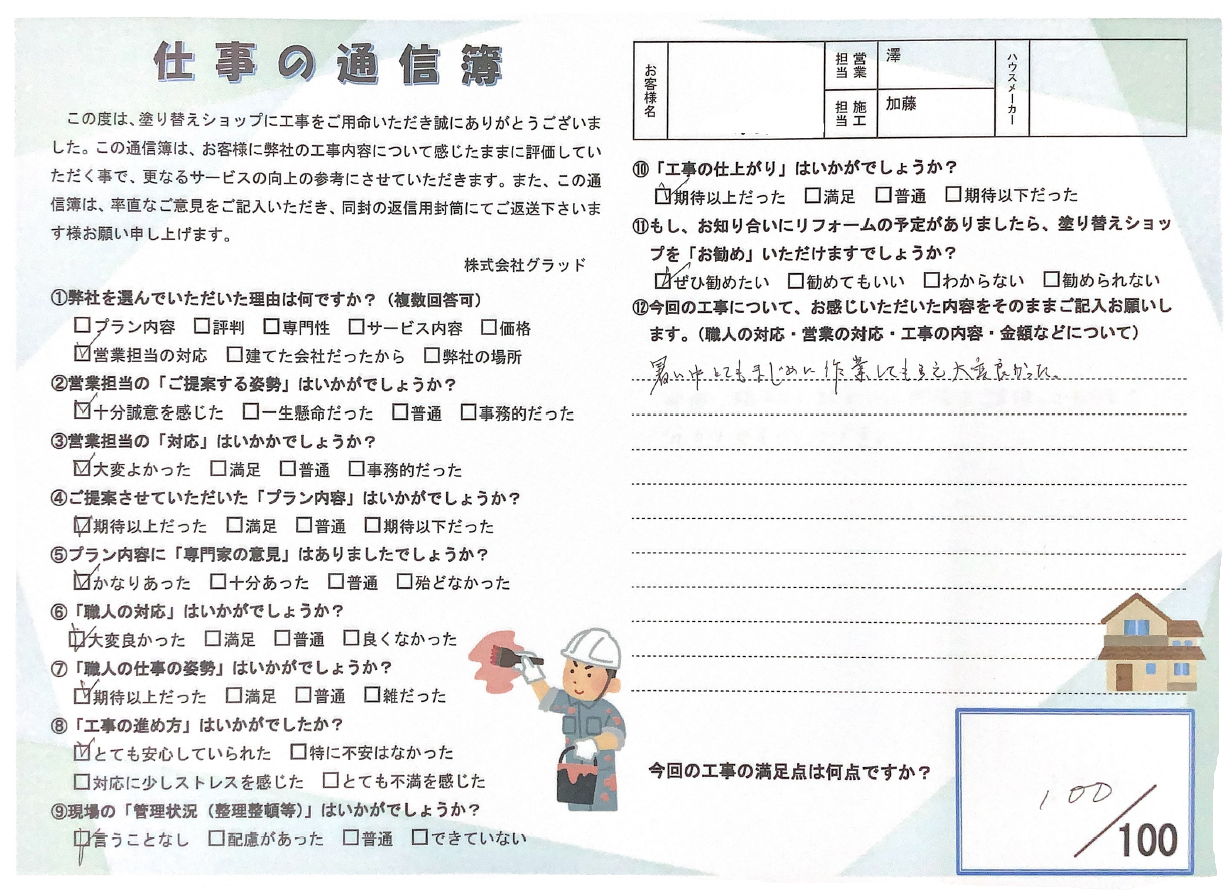 仕事の通信簿
この度は、塗り替えショップに工事をご用命いただき誠にありがとうございま
した。この通信簿は、お客様に弊社の工事内容について感じたままに評価してい
ただく事で、更なるサービスの向上の参考にさせていただきます。また、この通
信簿は、率直なご意見をご記入いただき、同封の返信用封筒にてご返送下さいま
す様お願い申し上げます。
株式会社グラッド
①弊社を選んでいただいた理由は何ですか？（複数回答可）
□プラン内容 □評判 □専門性 □サービス内容 □価格
☑営業担当の対応 □建てた会社だったから □弊社の場所
②営業担当の「ご提案する姿勢」はいかがでしょうか？
☑十分誠意を感じた □一生懸命だった □普通 □事務的だった
③営業担当の「対応」はいかかでしょうか？
☑大変よかった □満足 □普通 □事務的だった
④ご提案させていただいた「プラン内容」はいかがでしょうか？
☑期待以上だった □満足 □普通 □期待以下だった
⑤プラン内容に「専門家の意見」はありましたでしょうか？
☑かなりあった □十分あった □普通 □殆どなかった
⑥「職人の対応」はいかがでしょうか？
☑大変良かった □満足 □普通 □良くなかった
⑦「職人の仕事の姿勢」はいかがでしょうか？
☑期待以上だった □満足 □普通 □雑だった
⑧「工事の進め方」はいかがでしたか？
☑とても安心していられた □特に不安はなかった
□対応に少しストレスを感じた □とても不満を感じた
⑨現場の「管理状況（整理整頓等）」はいかがでしょうか？
☑言うことなし □配慮があった □普通 □できていない
お客様名
営業担当 澤
施工担当 加藤
ハウスメーカー
⑩「工事の仕上がり」はいかがでしょうか？
☑期待以上だった □満足 □普通 □期待以下だった
⑪もし、お知り合いにリフォームの予定がありましたら、塗り替えショッ
プを「お勧め」いただけますでしょうか？
☑ぜひ勧めたい □勧めてもいい □わからない □勧められない
⑫今回の工事について、お感じいただいた内容をそのままご記入お願いし
ます。（職人の対応・営業の対応・工事の内容・金額などについて）
暑い中とてもまじめに作業してもらえ大変良かった。
今回の工事の満足点は何点ですか？
100/100